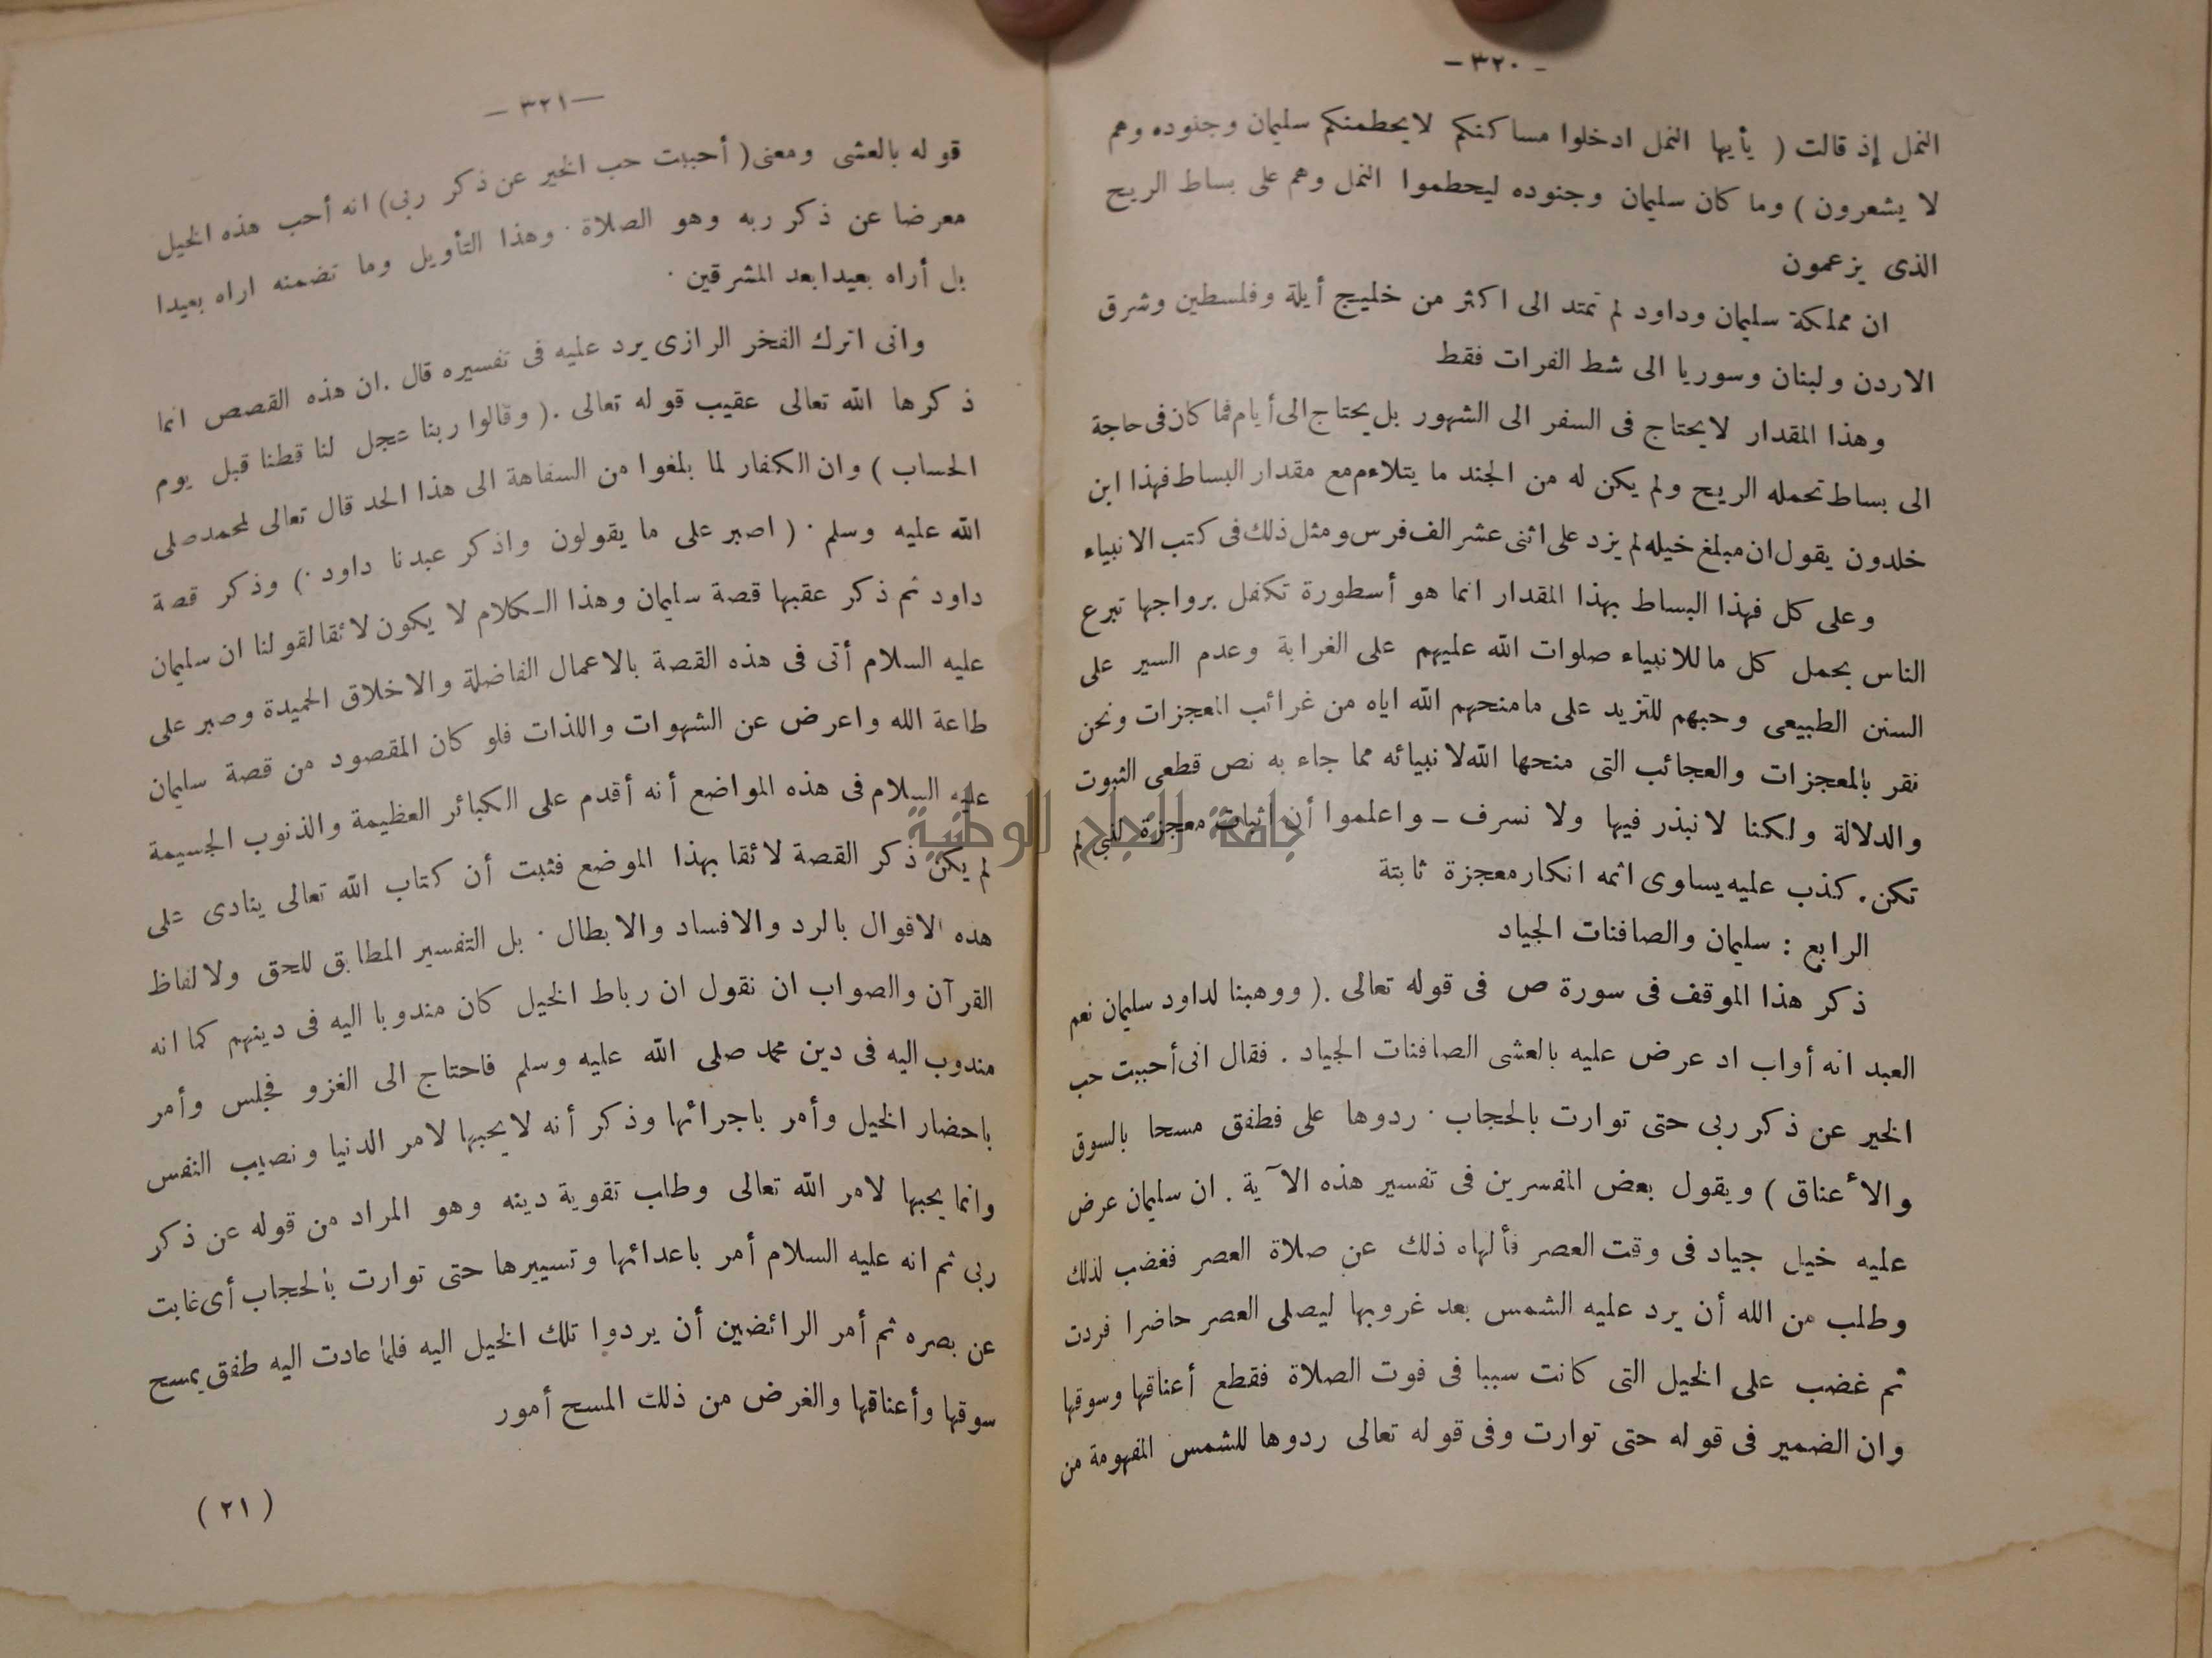 - ٣٢٠ -
النمل إذ قالت ( يأيها النمل ادخلوا مساكنكم لايحطمنكم سليمان وجنوده وهم
لا يشعرون ) وما كان سليمان وجنوده ليحطموا النمل وهم على بساط الريح
الذى يزعمون
ان مملكة سليمان وداود لم تمتد الى اكثر من خليج أيلة وفلسطين وشرق
الاردن ولبنان وسوريا الى شط الفرات فقط
وهذا المقدار لايحتاج فى السفر الى الشهور بل يحتاج الى أيام فما كان فى حاجة
الى بساط تحمله الريح ولم يكن له من الجند ما يتلاءم مع مقدار البساط فهذا ابن
خلدون يقول ان مبلغ خيله لم يزد على اثنى عشر الف فرس ومثل ذلك فى كتب الانبياء
وعلى كل فهذا البساط بهذا المقدار انما هو أسطورة تكفل برواجها تبرع
الناس بحمل كل ما للانبياء صلوات الله عليهم على الغرابة وعدم السير على
السنن الطبيعى وحبهم للتزيد على مامنحهم الله اياه من غرائب المعجزات ونحن
نقر بالمعجزات والعجائب التى منحها الله لانبيائه مما جاء به نص قطعى الثبوت
والدلالة ولكنا لا نبذر فيها ولا نسرف - واعلموا أن اثبات معجزة لنبى لم
تكن . كذب عليه يساوى اثمه انكار معجزة ثابتة
الرابع : سليمان والصافنات الجياد
ذكر هذا الموقف فى سورة ص فى قوله تعالى .( ووهبنا لداود سليمان نعم
العبد انه أواب اد عرض عليه بالعشى الصافنات الجياد . فقال انى أحببت حب
الخير عن ذكر ربى حتى توارت بالحجاب . ردوها على فطفق مسحا بالسوق
والأعناق ) ويقول بعض المفسرين فى تفسير هذه الآية . ان سليمان عرض
عليه خيل جياد فى وقت العصر فألهاه ذلك عن صلاة العصر فغضب لذلك
وطلب من الله أن يرد عليه الشمس بعد غروبها ليصلى العصر حاضرا فردت
ثم غضب على الخيل التى كانت سببا فى فوت الصلاة فقطع أعناقها وسوقها
وان الضمير فى قوله حتى توارت وفى قوله تعالى ردوها للشمس المفهومة من
— ٣٢١ —
قوله بالعشى ومعنى ( أحببت حب الخير عن ذكر ربى) انه أحب هذه الخيل
معرضا عن ذكر ربه وهو الصلاة . وهذا التأويل وما تضمنه اراه بعيدا
بل أراه بعيدا بعد المشرقين .
وانى اترك الفخر الرازى يرد عليه فى تفسيره قال .ان هذه القصص انما
ذكرها الله تعالى عقيب قوله تعالى .( وقالوا ربنا عجل لنا قطنا قبل يوم
الحساب ) وان الكفار لما بلغوا من السفاهة الى هذا الحد قال تعالى لمحمد صلى
الله عليه وسلم . ( اصبر على ما يقولون واذكر عبدنا داود .) وذكر قصة
داود ثم ذكر عقبها قصة سليمان وهذا الكلام لا يكون لائقا لقولنا ان سليمان
عليه السلام أتى فى هذه القصة بالاعمال الفاضلة والاخلاق الحميدة وصبر على
طاعة الله واعرض عن الشهوات واللذات فلو كان المقصود من قصة سليمان
عليه السلام فى هذه المواضع أنه أقدم على الكبائر العظيمة والذنوب الجسيمة
لم يكن ذكر القصة لائقا بهذا الموضع فثبت أن كتاب الله تعالى ينادى على
هذه الاقوال بالرد والافساد والابطال . بل التفسير المطابق للحق ولالفاظ
القرآن والصواب ان نقول ان رباط الخيل كان مندوبا اليه فى دينهم كما انه
مندوب اليه فى دين محمد صلى الله عليه وسلم فاحتاج الى الغزو فجلس وأمر
باحضار الخيل وأمر باجرائها وذكر أنه لا يحبها لامر الدنيا ونصيب النفس
وانما يحبها لامر الله تعالى وطلب تقوية دينه وهو المراد من قوله عن ذكر
ربى ثم انه عليه السلام أمر باعدائها وتسييرها حتى توارت بالحجاب أى غابت
عن بصره ثم أمر الرائضين أن يردوا تلك الخيل اليه فلما عادت اليه طفق يمسح
سوقها وأعناقها والغرض من ذلك المسح أمور
( ٢١ )
جامعة النجاح الوطنية